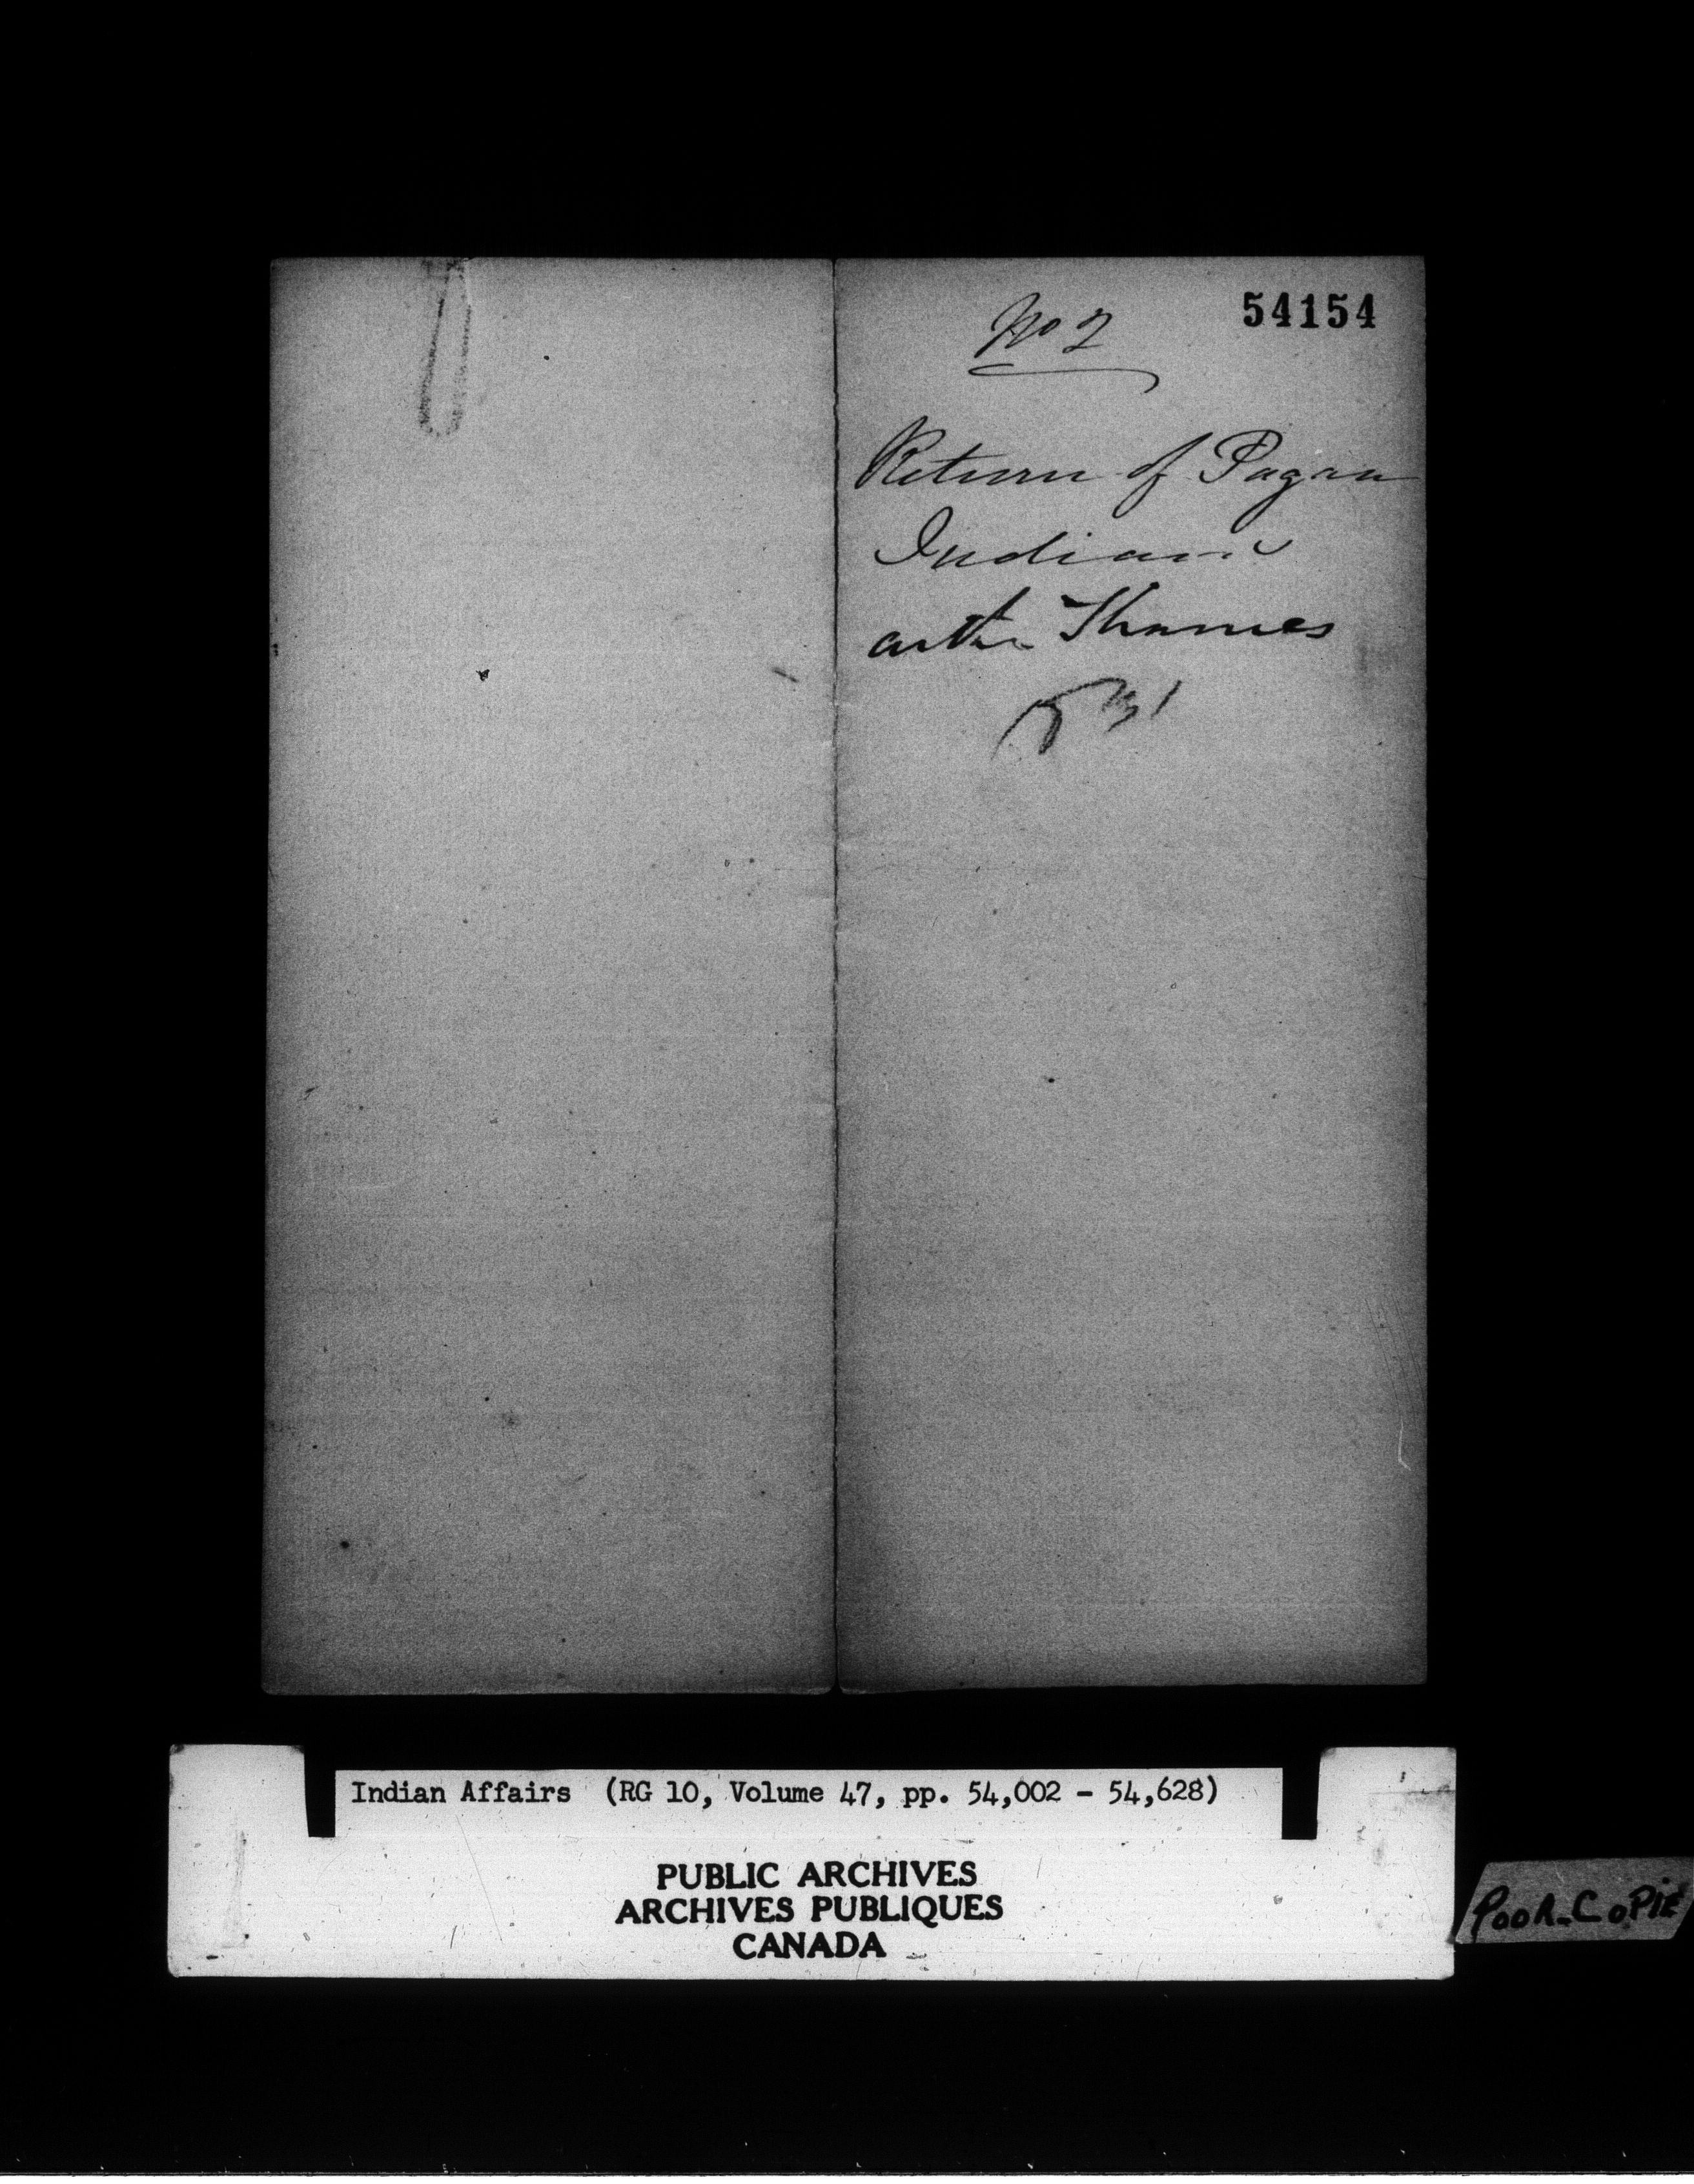 54154
No 2
Return of Pagan
Indians
on the Thames
Indian Affairs (RG 10, Volume 47, pp. 54,002 - 54,628)
PUBLIC ARCHIVES
ARCHIVES PUBLIQUES
CANADA
POOR COPIE